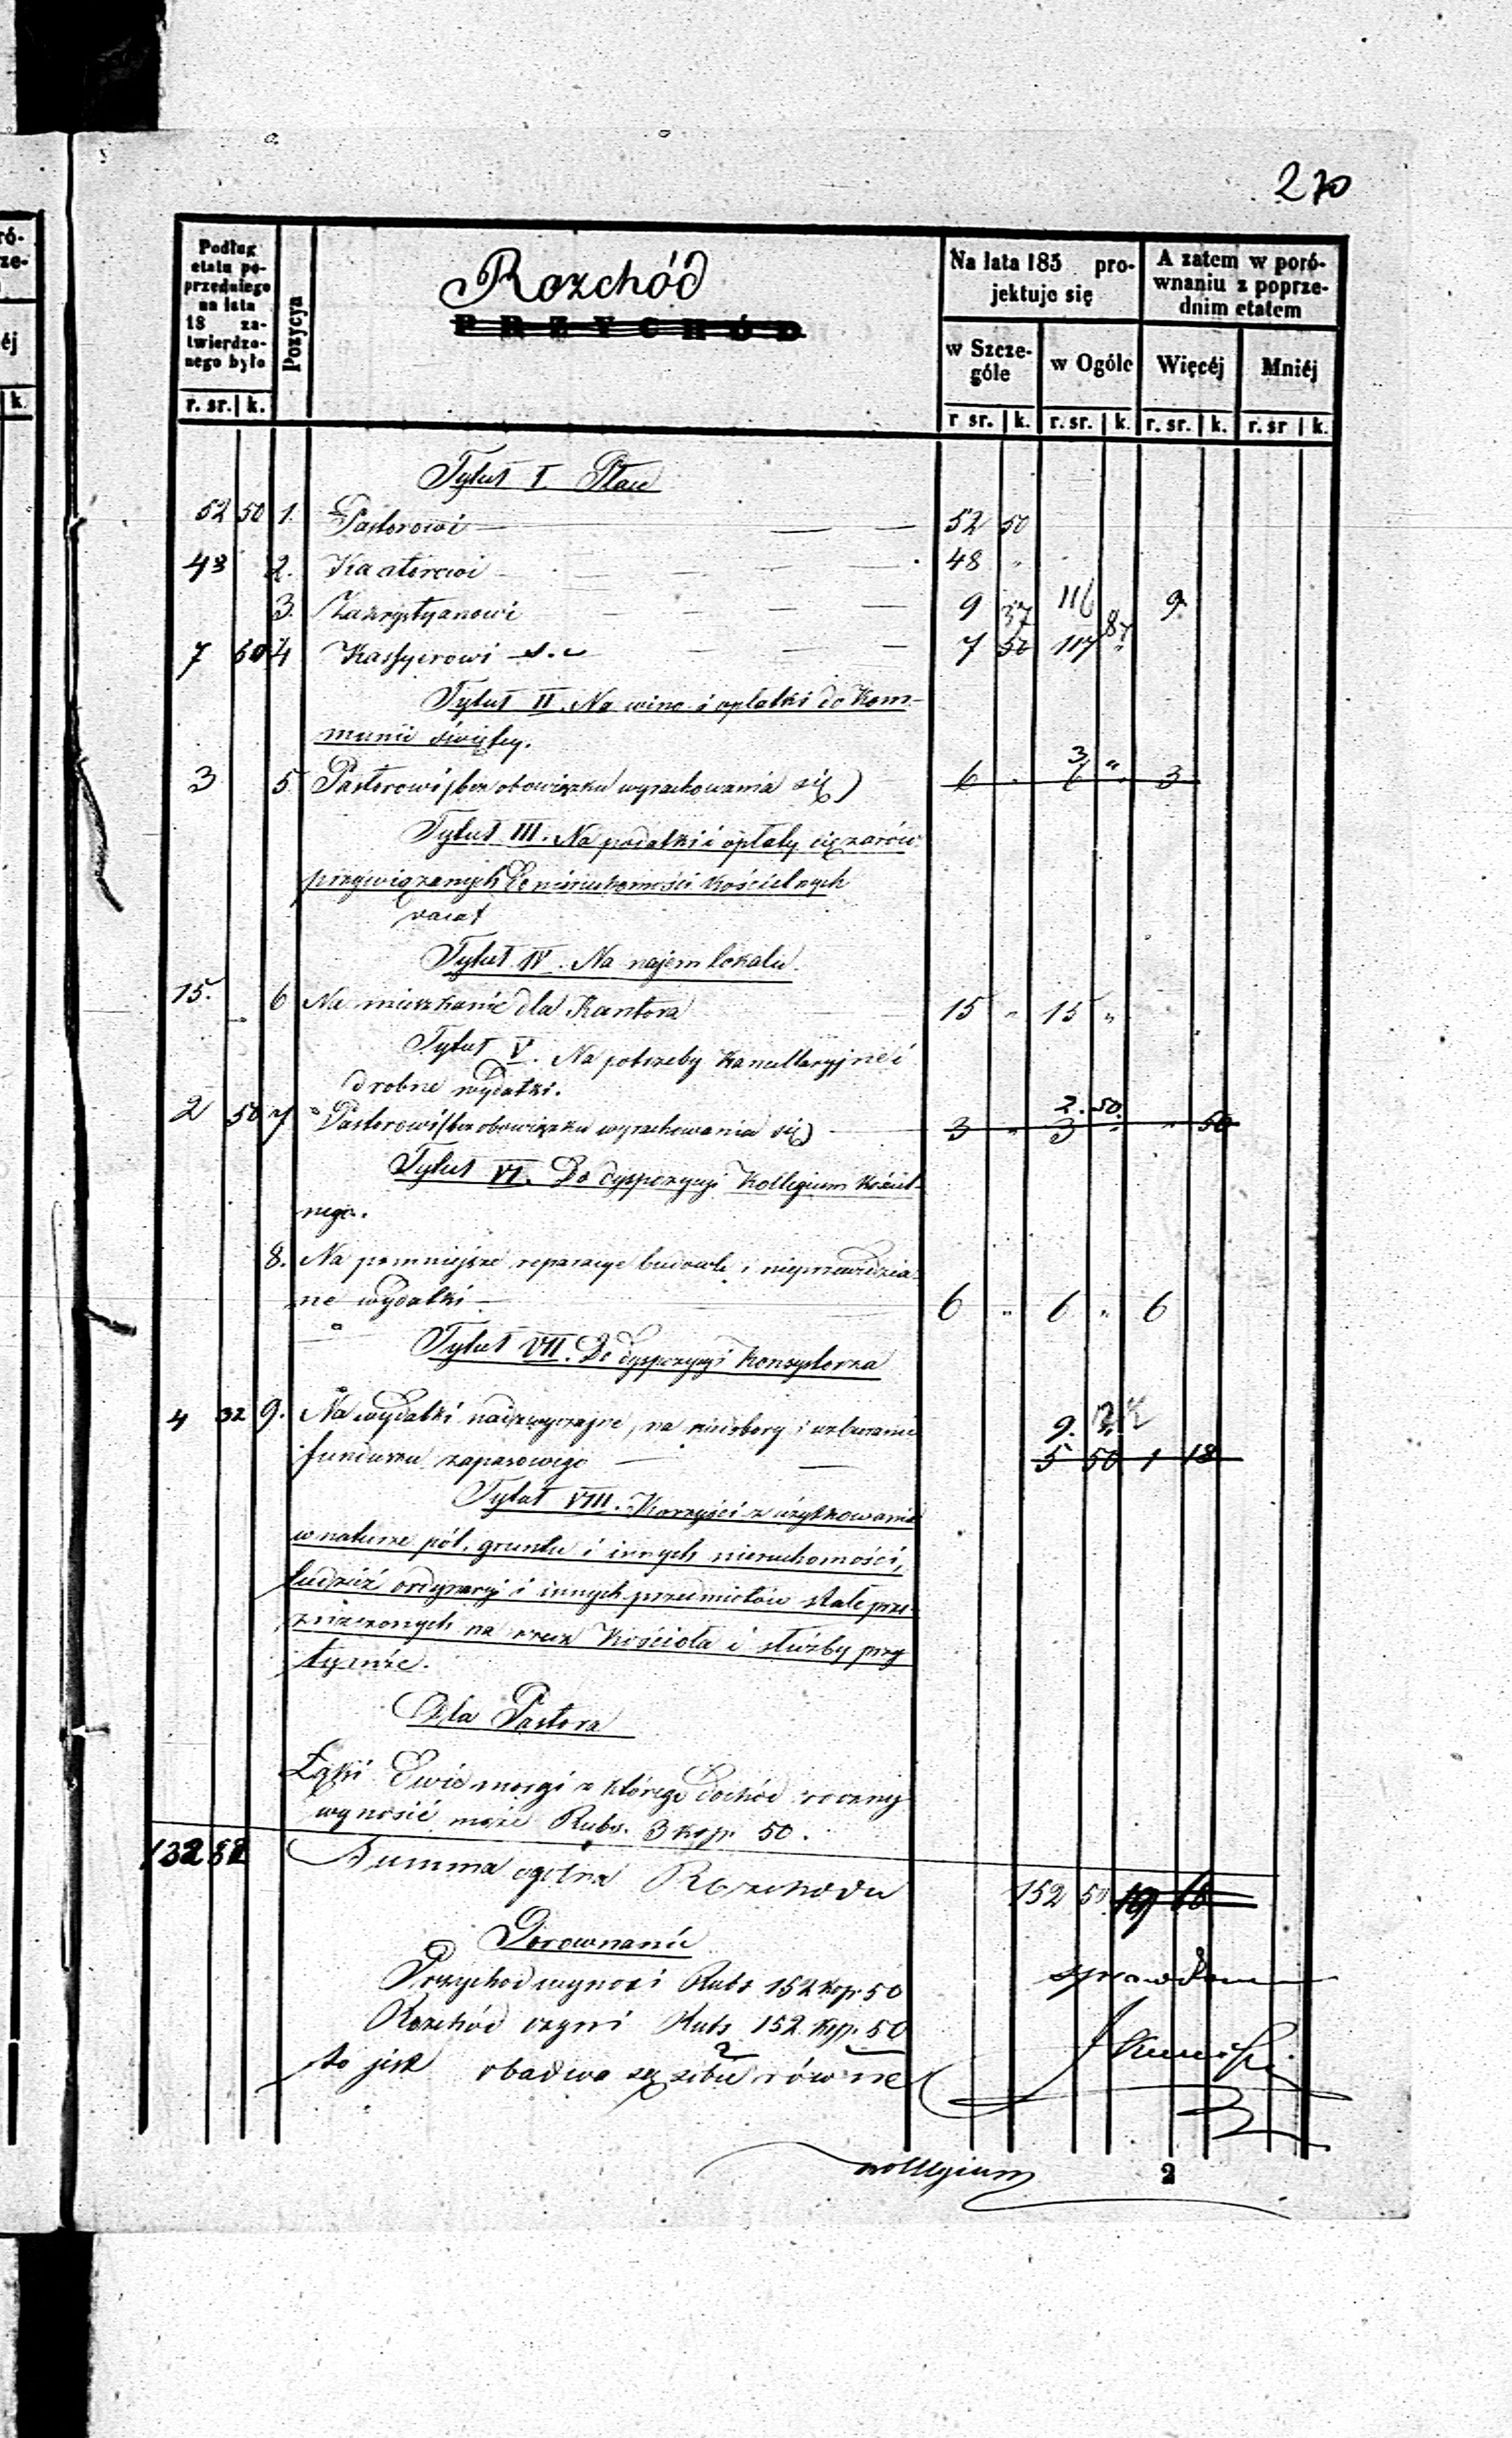 270
Podług etatu poprzedniego na lata 18 zatwierdzonego było
Pozycya
Rozchód
PRZYCHÓD
Na lata 185 projektuje się
A zatem w porównaniu z poprzednim etatem
w Szczególe
w Ogóle
Więcéj
Mniéj
r. sr. k.
r sr. k. r. sr. k. r. sr. k. r. sr k.
Tytuł I. Płace
52 50 1. Pastorowi 52 50
48 2. Kantorowi 48 "
3. Zakrystyanowi 9 37 116 87 9
7 50 4 Kassyerowi 7 50 117 "
Tytuł II. Na wino i opłatki do Kom-
munii świętey.
3 5 Pastorowi (bez obowiązku wyrachowania się) 6 " 6 " 3
3 "
Tytuł III. Na podatki i opłaty ciężarów
przywiązanych do nieruchomości kościelnych
vacat
Tytuł IV. Na najem lokalu.
15. 6 Na mieszkanie dla Kantora 15 " 15 "
Tytuł V. Na potrzeby kancellaryjne i
drobne wydatki.
2 50 7 Pastorowi (bez obowiązku wyrachowania się) 3 " 3 " " 50
2. 50.
Tytuł VI. Do dyspozycyi Kollegium Kościel-
nego.
8. Na pomniejsze reparacye budowle i nieprzewidzia-
ne wydatki 6 " 6 " 6
Tytuł VII. Do dyspozycyi Konsystorza
4 32 9. Na wydatki nadzwyczajne, na niedobory i utworzenie
9.
funduszu zapasowego 5 50 1 18
Tytuł VIII. Korzyści z użytkowania
w naturze pól, gruntu i innych nieruchomości,
tudzież ordynaryi i innych przedmiotów stale prze-
znaczonych na rzecz Kościoła i służby przy
tymże.
Dla Pastora
Łąki dwie morgi z którego dochód roczny
wynosić może Rubs. 3 kop. 50.
132 82 Summa ogólna Rozchodu 152 50 19 68
Porownanie
Przychod wynosi Rubs 152 kop. 50
Rozchód czyni Rubs 152. kop. 50
to jest obadwa są sobie równe
2
Kollegium